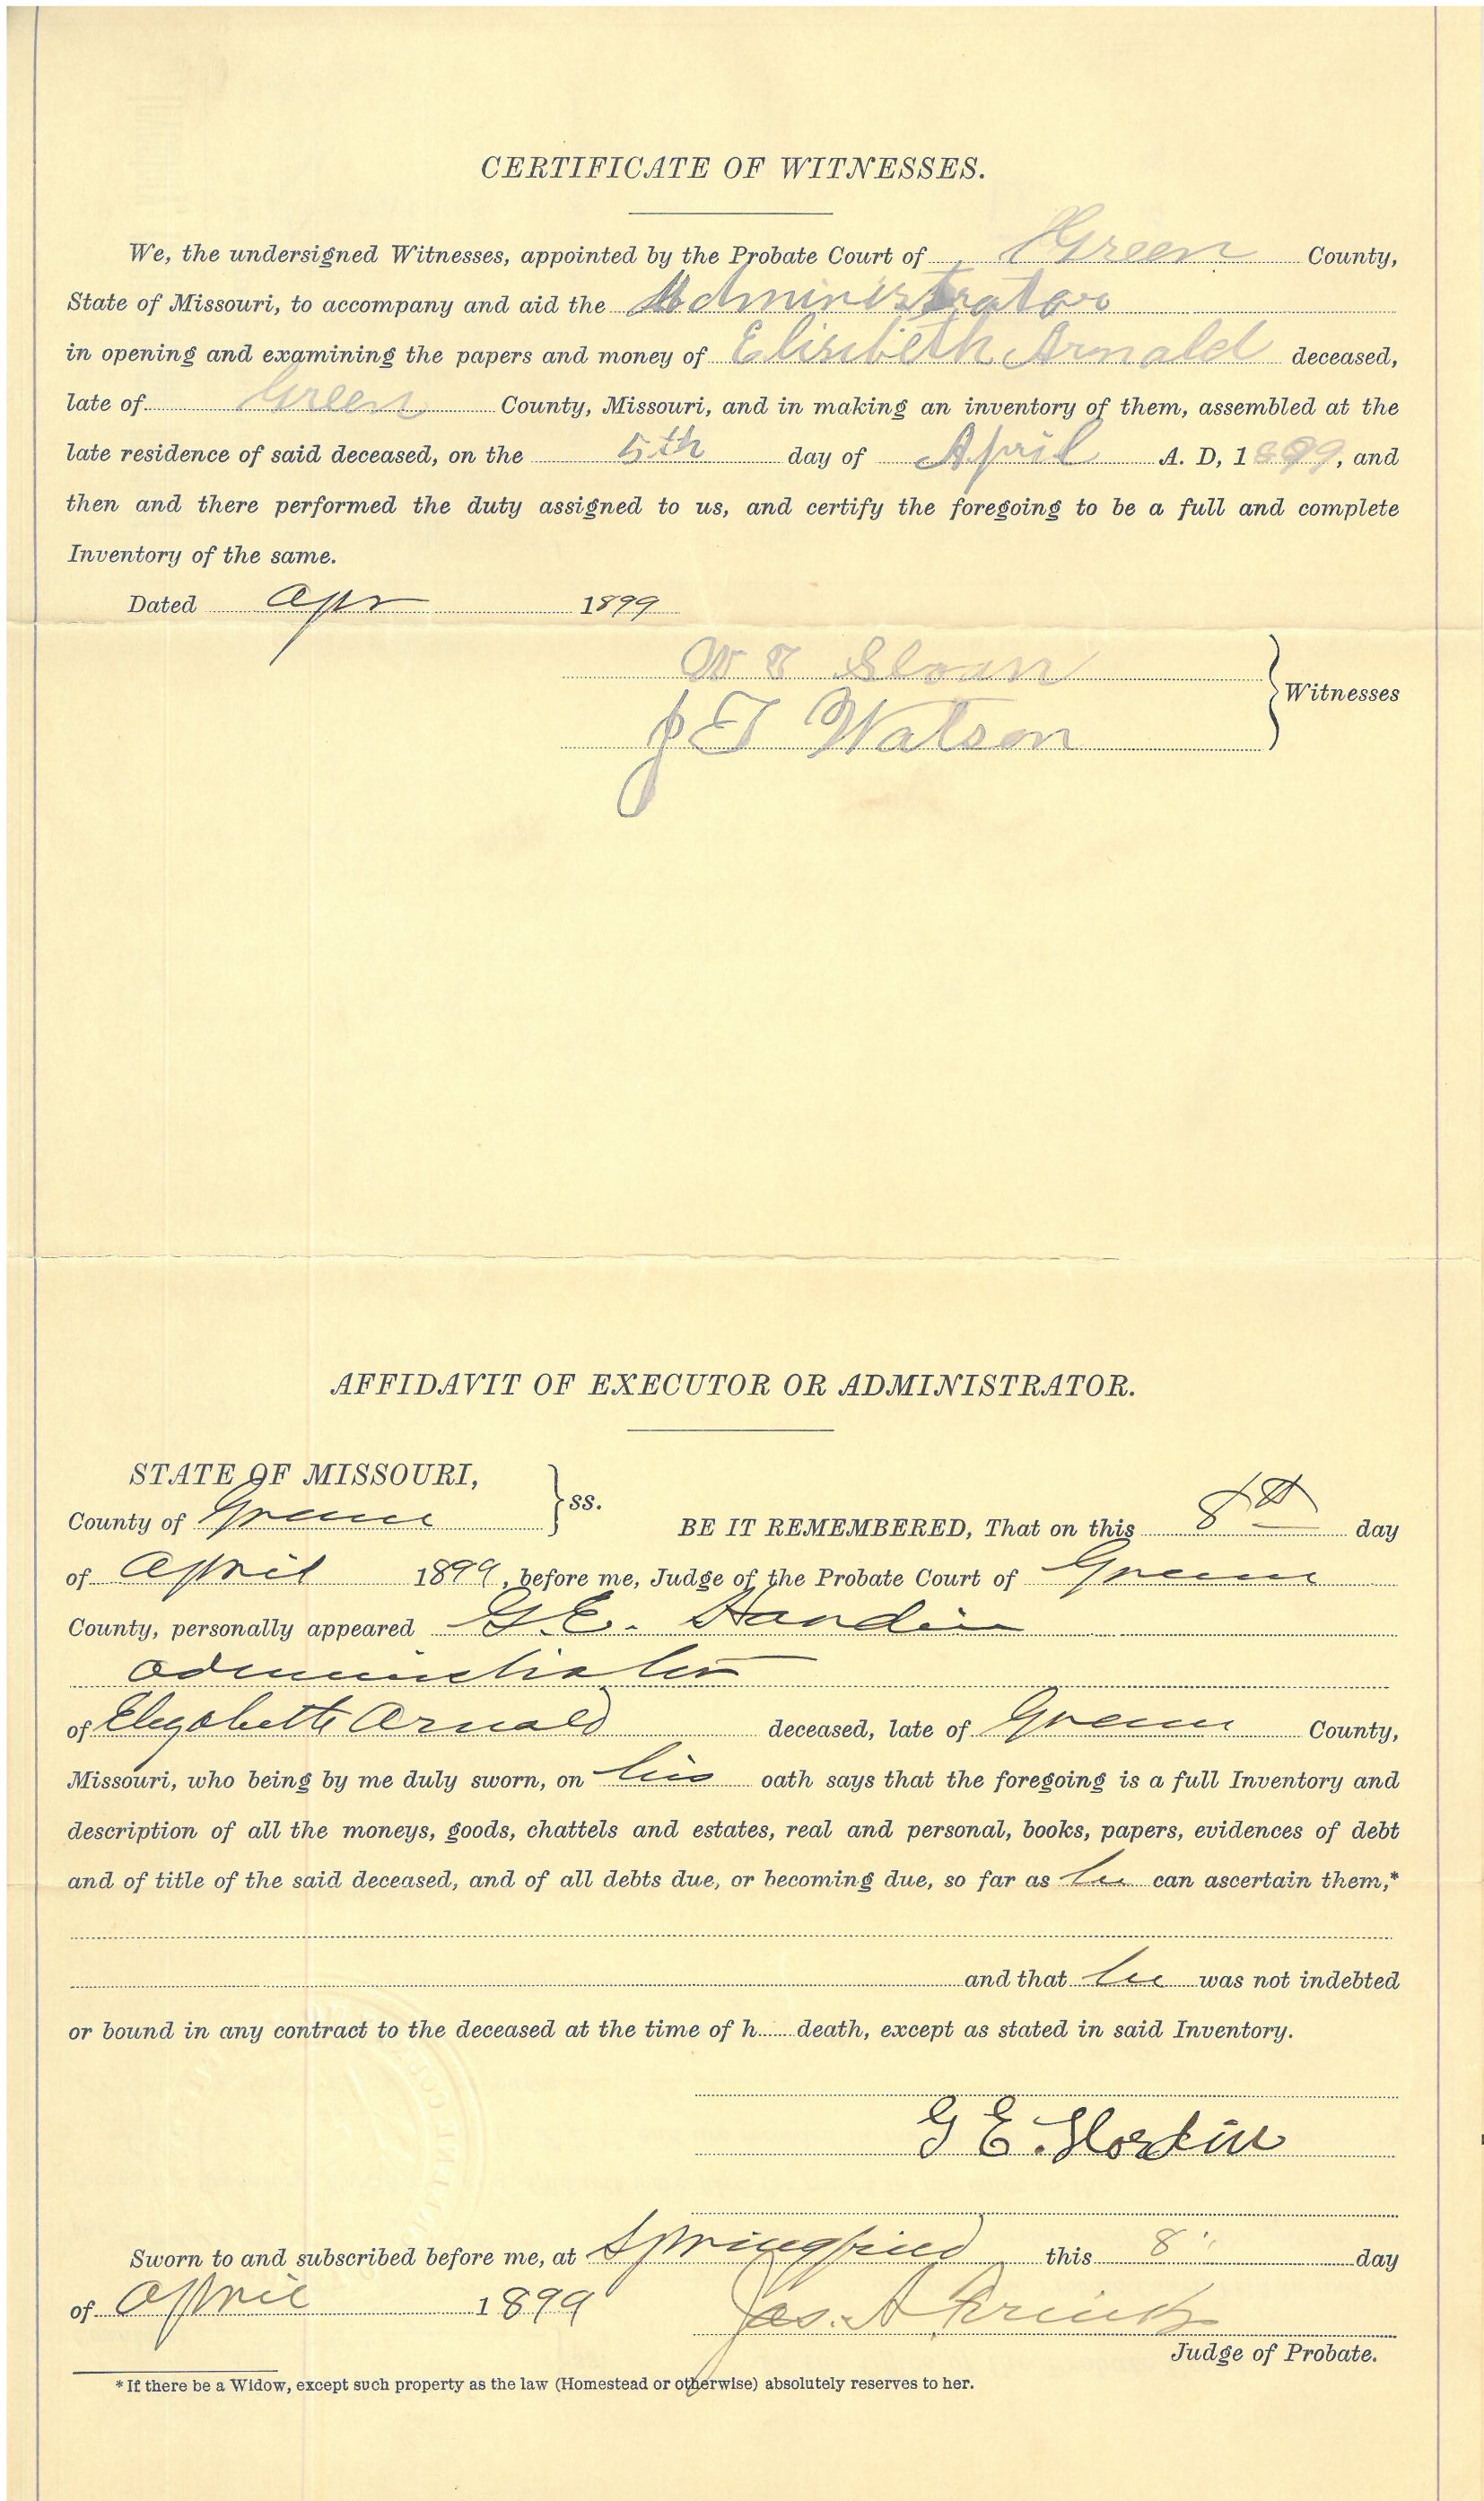 CERTIFICATE OF WITNESSES.
We, the undersigned Witnesses, appointed by the Probate Court of Green County,
State of Missouri, to accompany and aid the Administrator
in opening and examining the papers and money of Elisibeth Arnald deceased,
late of Green County, Missouri, and in making an inventory of them, assembled at the
late residence of said deceased, on the 5th day of April A. D, 1899, and
then and there performed the duty assigned to us, and certify the foregoing to be a full and complete
Inventory of the same.
Dated Apr 1899
W T Sloan
J T Watson
Witnesses
AFFIDAVIT OF EXECUTOR OR ADMINISTRATOR.
STATE OF MISSOURI,
County of Greene
ss.
BE IT REMEMBERED, That on this 8th day
of April 1899, before me, Judge of the Probate Court of Greene
County, personally appeared G. E. Hardin
administrator
of Elizabeth Arnald deceased, late of Greene County,
Missouri, who being by me duly sworn, on his oath says that the foregoing is a full Inventory and
description of all the moneys, goods, chattels and estates, real and personal, books, papers, evidences of debt
and of title of the said deceased, and of all debts due, or becoming due, so far as he can ascertain them,*
and that he was not indebted
or bound in any contract to the deceased at the time of h death, except as stated in said Inventory.
G E. Hardin
Sworn to and subscribed before me, at Springfield this 8" day
of April 1899 Jas. A
Judge of Probate.
*If there be a Widow, except such property as the law (Homestead or otherwise) absolutely reserves to her.